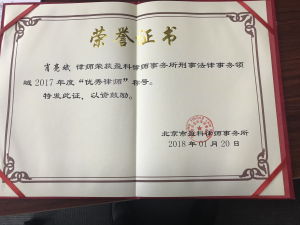 荣誉证书
律师荣获盈科律师事务所刑事法律事务领
域2017年度“优秀律师”称号。
特发此证，以资鼓励。
北京市盈科律师事务所
2018年01月20日